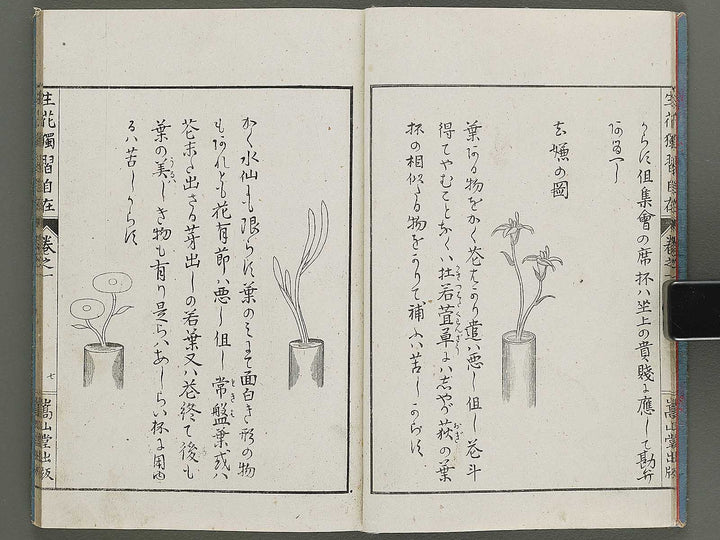 生花獨習自在
卷之一
嵩山堂出版
からず但集會の席抔ハ坐上の貴賤に應して勘弁
あるべし
去嫌の圖
葉ある物をかく花ばかり遣ハ悪し但し花斗
得てやむことなくハ杜若萓草にハしやが荻の葉
抔の相似たる物をかりて補ふハ苦しからず
かく水仙にも限らず葉のミにて面白き形の物
もあれども花有節ハ悪し但し常盤葉或ハ
花未た出さる芽出しの若葉又ハ花終て後も
葉の美しき物も有り是らハあしらい抔に用ゆ
るハ苦しからず
生花獨習自在
卷之一
七
嵩山堂出版